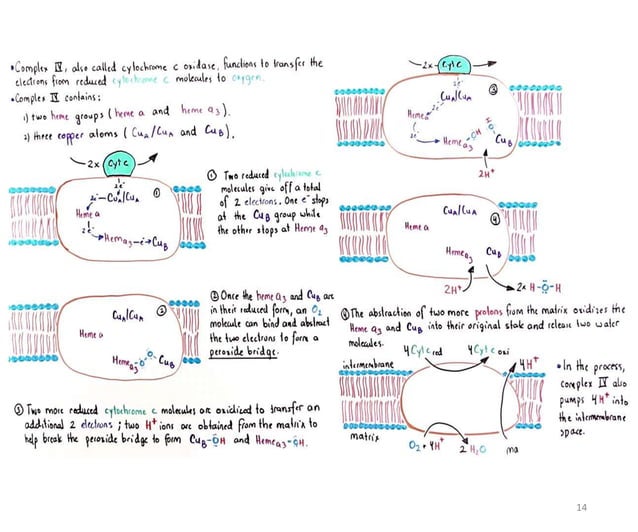 •Complex IV, also called cytochrome c oxidase, functions to transfer the
electrons from reduced cytochrome c molecules to oxygen.
•Complex IV contains:
1) two heme groups (heme a and heme a3).
2) three copper atoms (CuA/CuA and CuB).
2x Cyt c
2e-
CuA/CuA
①
2e-
Heme a
2e-
Heme a3 -e-→ CuB
① Two reduced cytochrome c
molecules give off a total
of 2 electrons. One e- stops
at the CuB group while
the other stops at Heme a3
CuA/CuA
②
Heme a
Heme a3-O-O-CuB
② Once the heme a3 and CuB are
in their reduced form, an O2
molecule can bind and abstract
the two electrons to form a
peroxide bridge.
③ Two more reduced cytochrome c molecules are oxidized to transfer an
additional 2 electrons; two H+ ions are obtained from the matrix to
help break the peroxide bridge to form CuB-OH and Heme a3-OH.
2x Cyt c
2e-
CuA/CuA
③
2e-
Heme a
2e-
Heme a3-OH
H
O
CuB
2H+
CuA/CuA
④
Heme a
Heme a3 CuB
2H+
2x H-O-H
④ The abstraction of two more protons from the matrix oxidizes the
Heme a3 and CuB into their original state and release two water
molecules.
4Cyt c red 4Cyt c oxi
intermembrane
4H+
matrix
O2 + 4H+ 2 H2O
ma
• In the process,
complex IV also
pumps 4H+ into
the intermembrane
space.
14